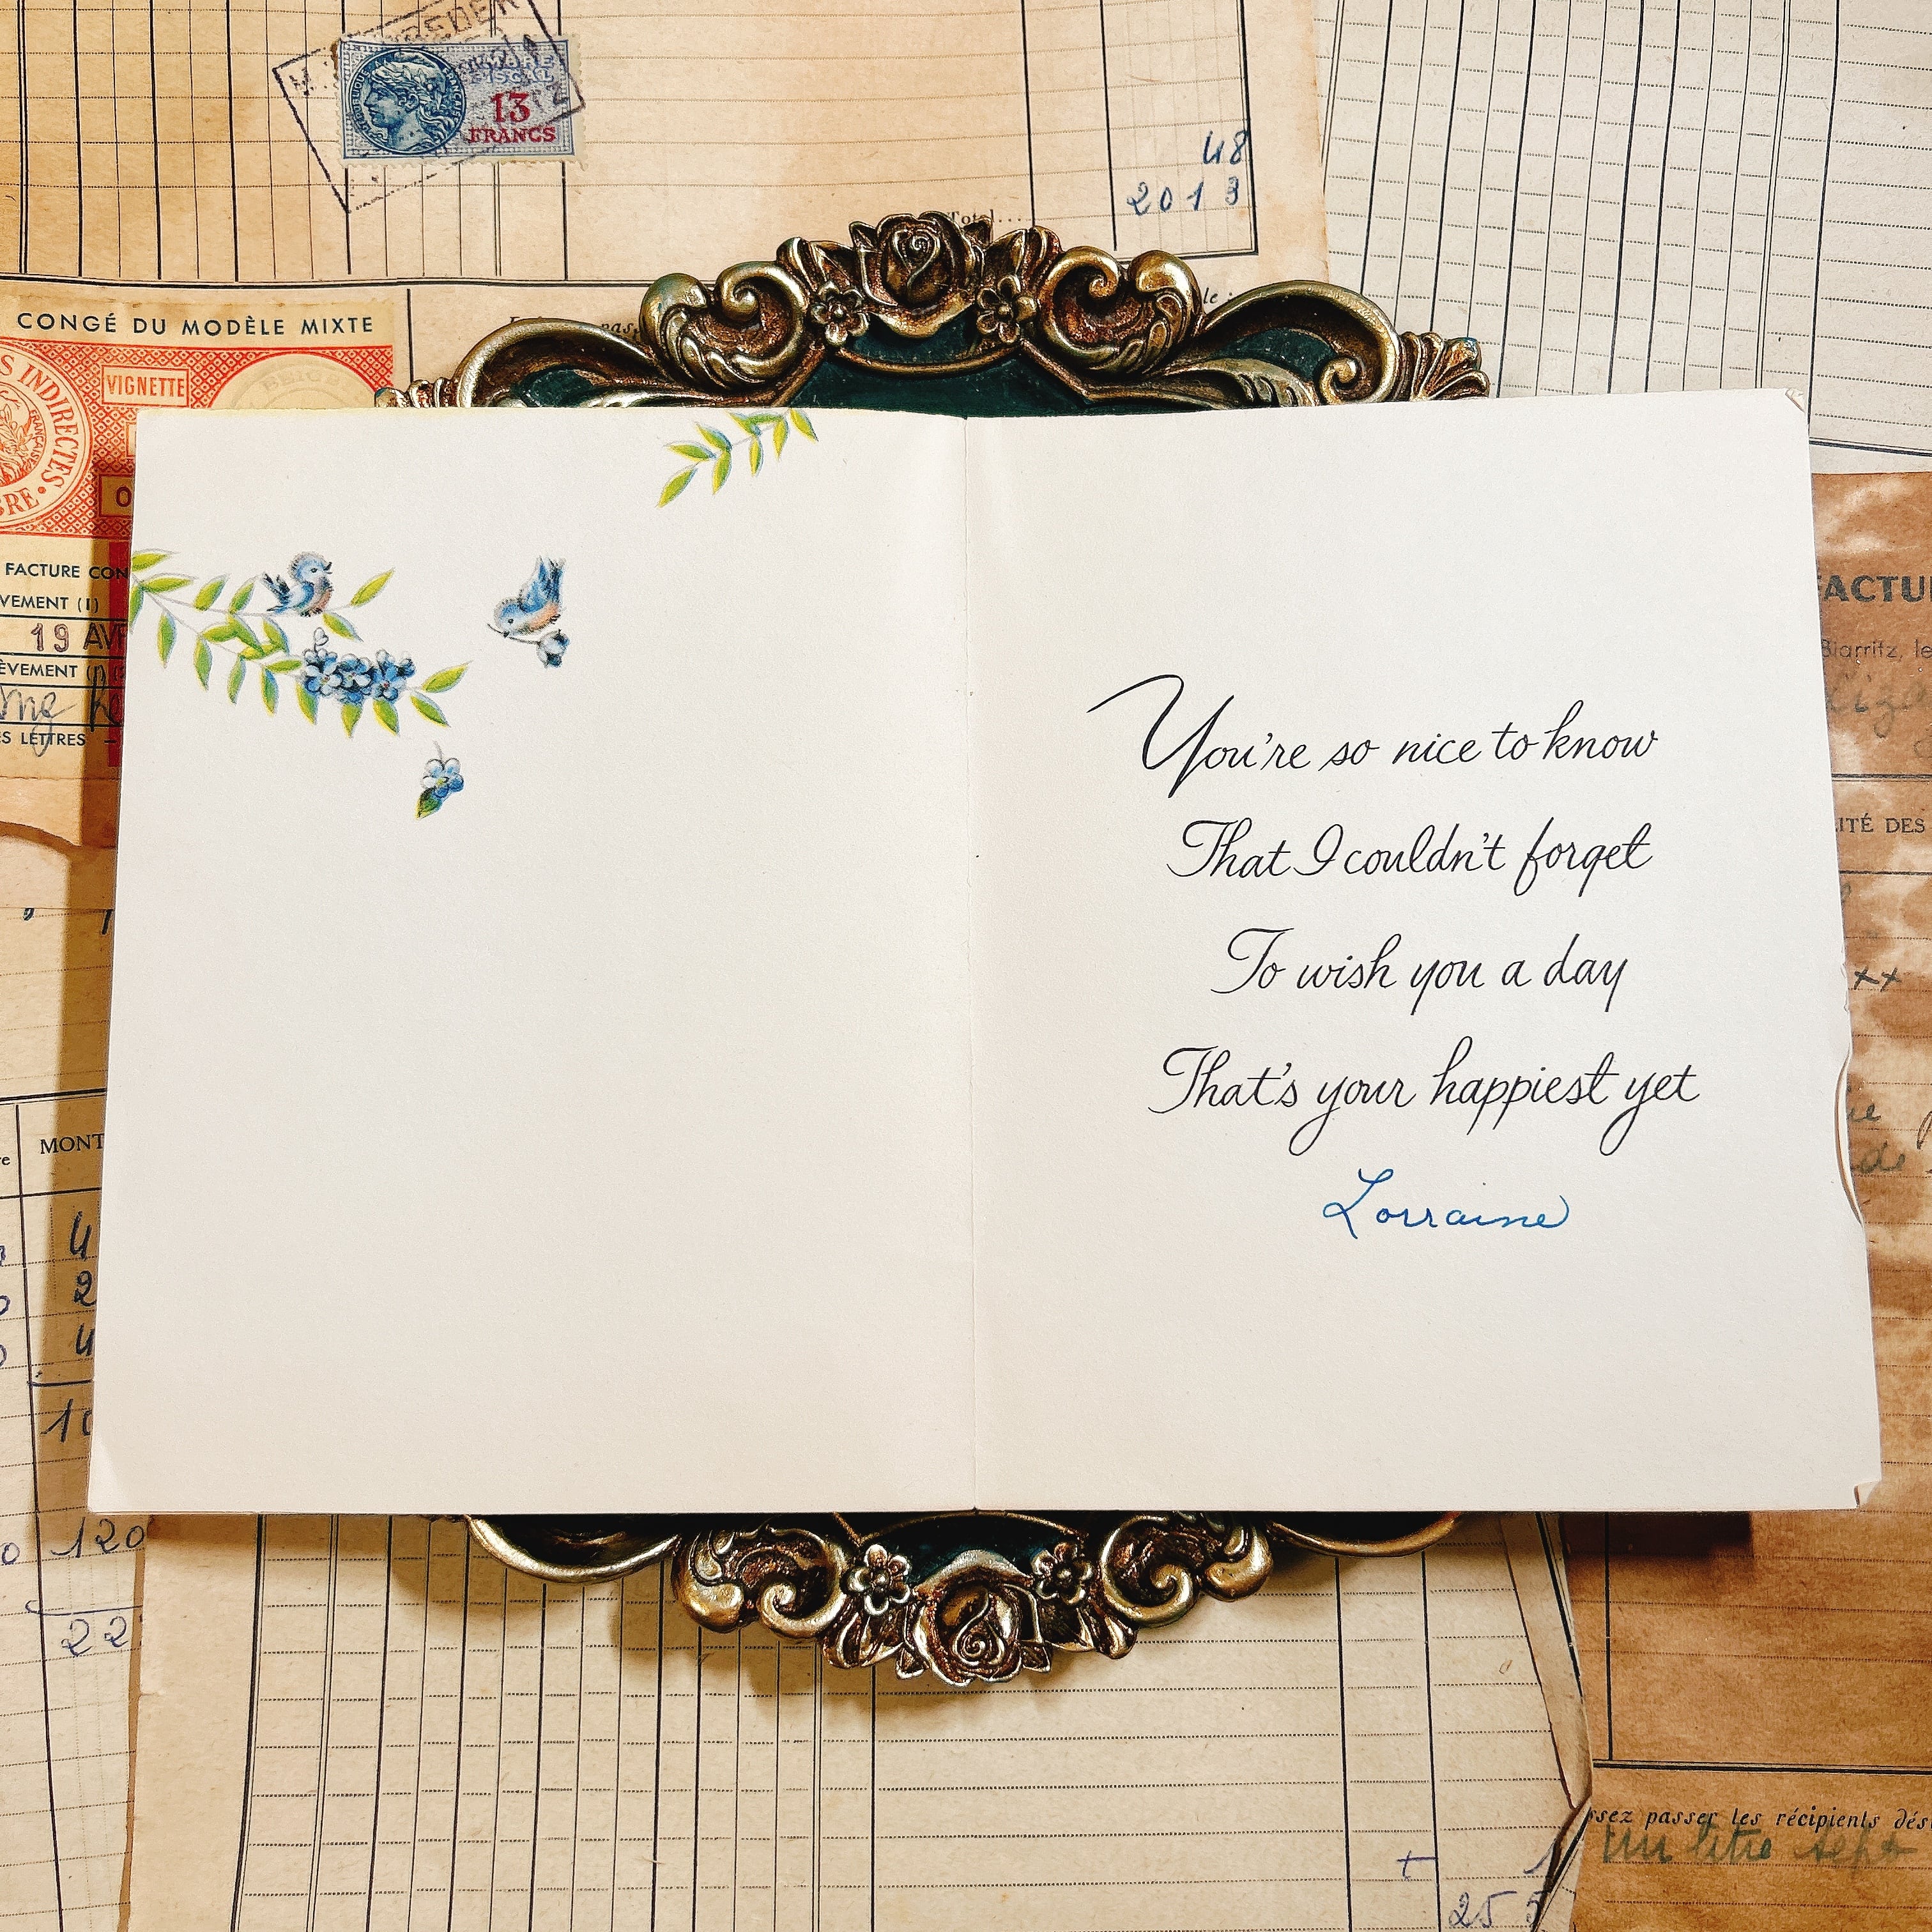 TIMBRE
FISCAL
13
FRANCS
48
2013
Total....
CONGÉ DU MODÈLE MIXTE
VIGNETTE
INDIRECTES
FACTURE CON
VEMENT (1)
19 AV
ÈVEMENT (
ES LETTRES –
FACTU
Biarritz, le
ITÉ DES
xx
You're so nice to know
That I couldn't forget
To wish you a day
That's your happiest yet
Lorraine
MONT
4
2
4
10
120
22
ssez passer les récipients dés
un litre sept
255